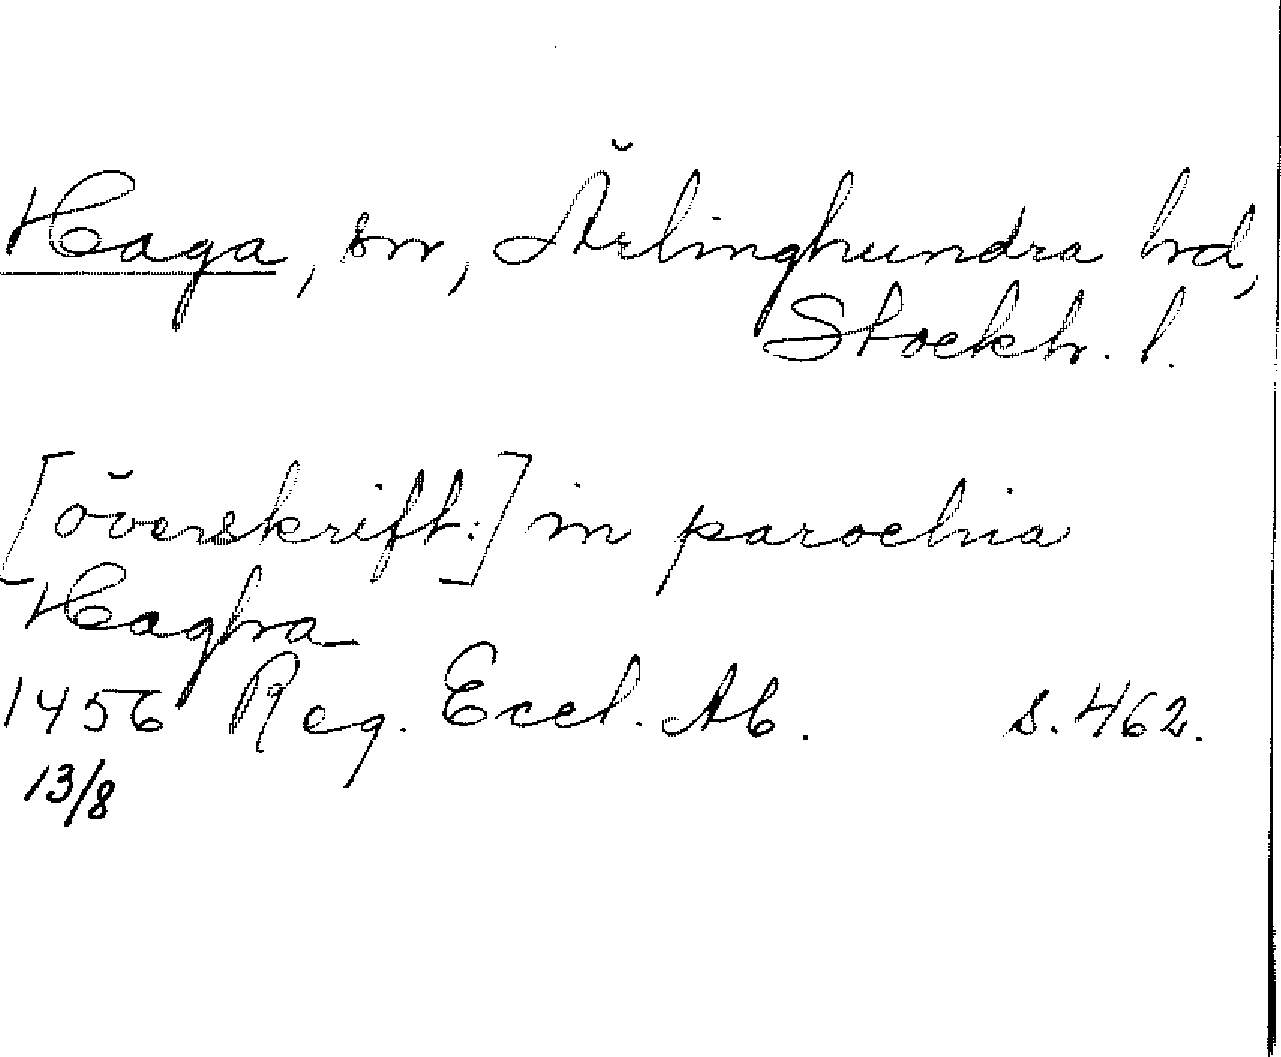 Haga, sn, Ärlinghundra hd,
Stockh. l.
[överskrift:] in parochia
Haghra
1456 Reg. Eccl. Ab. s. 462.
13/8